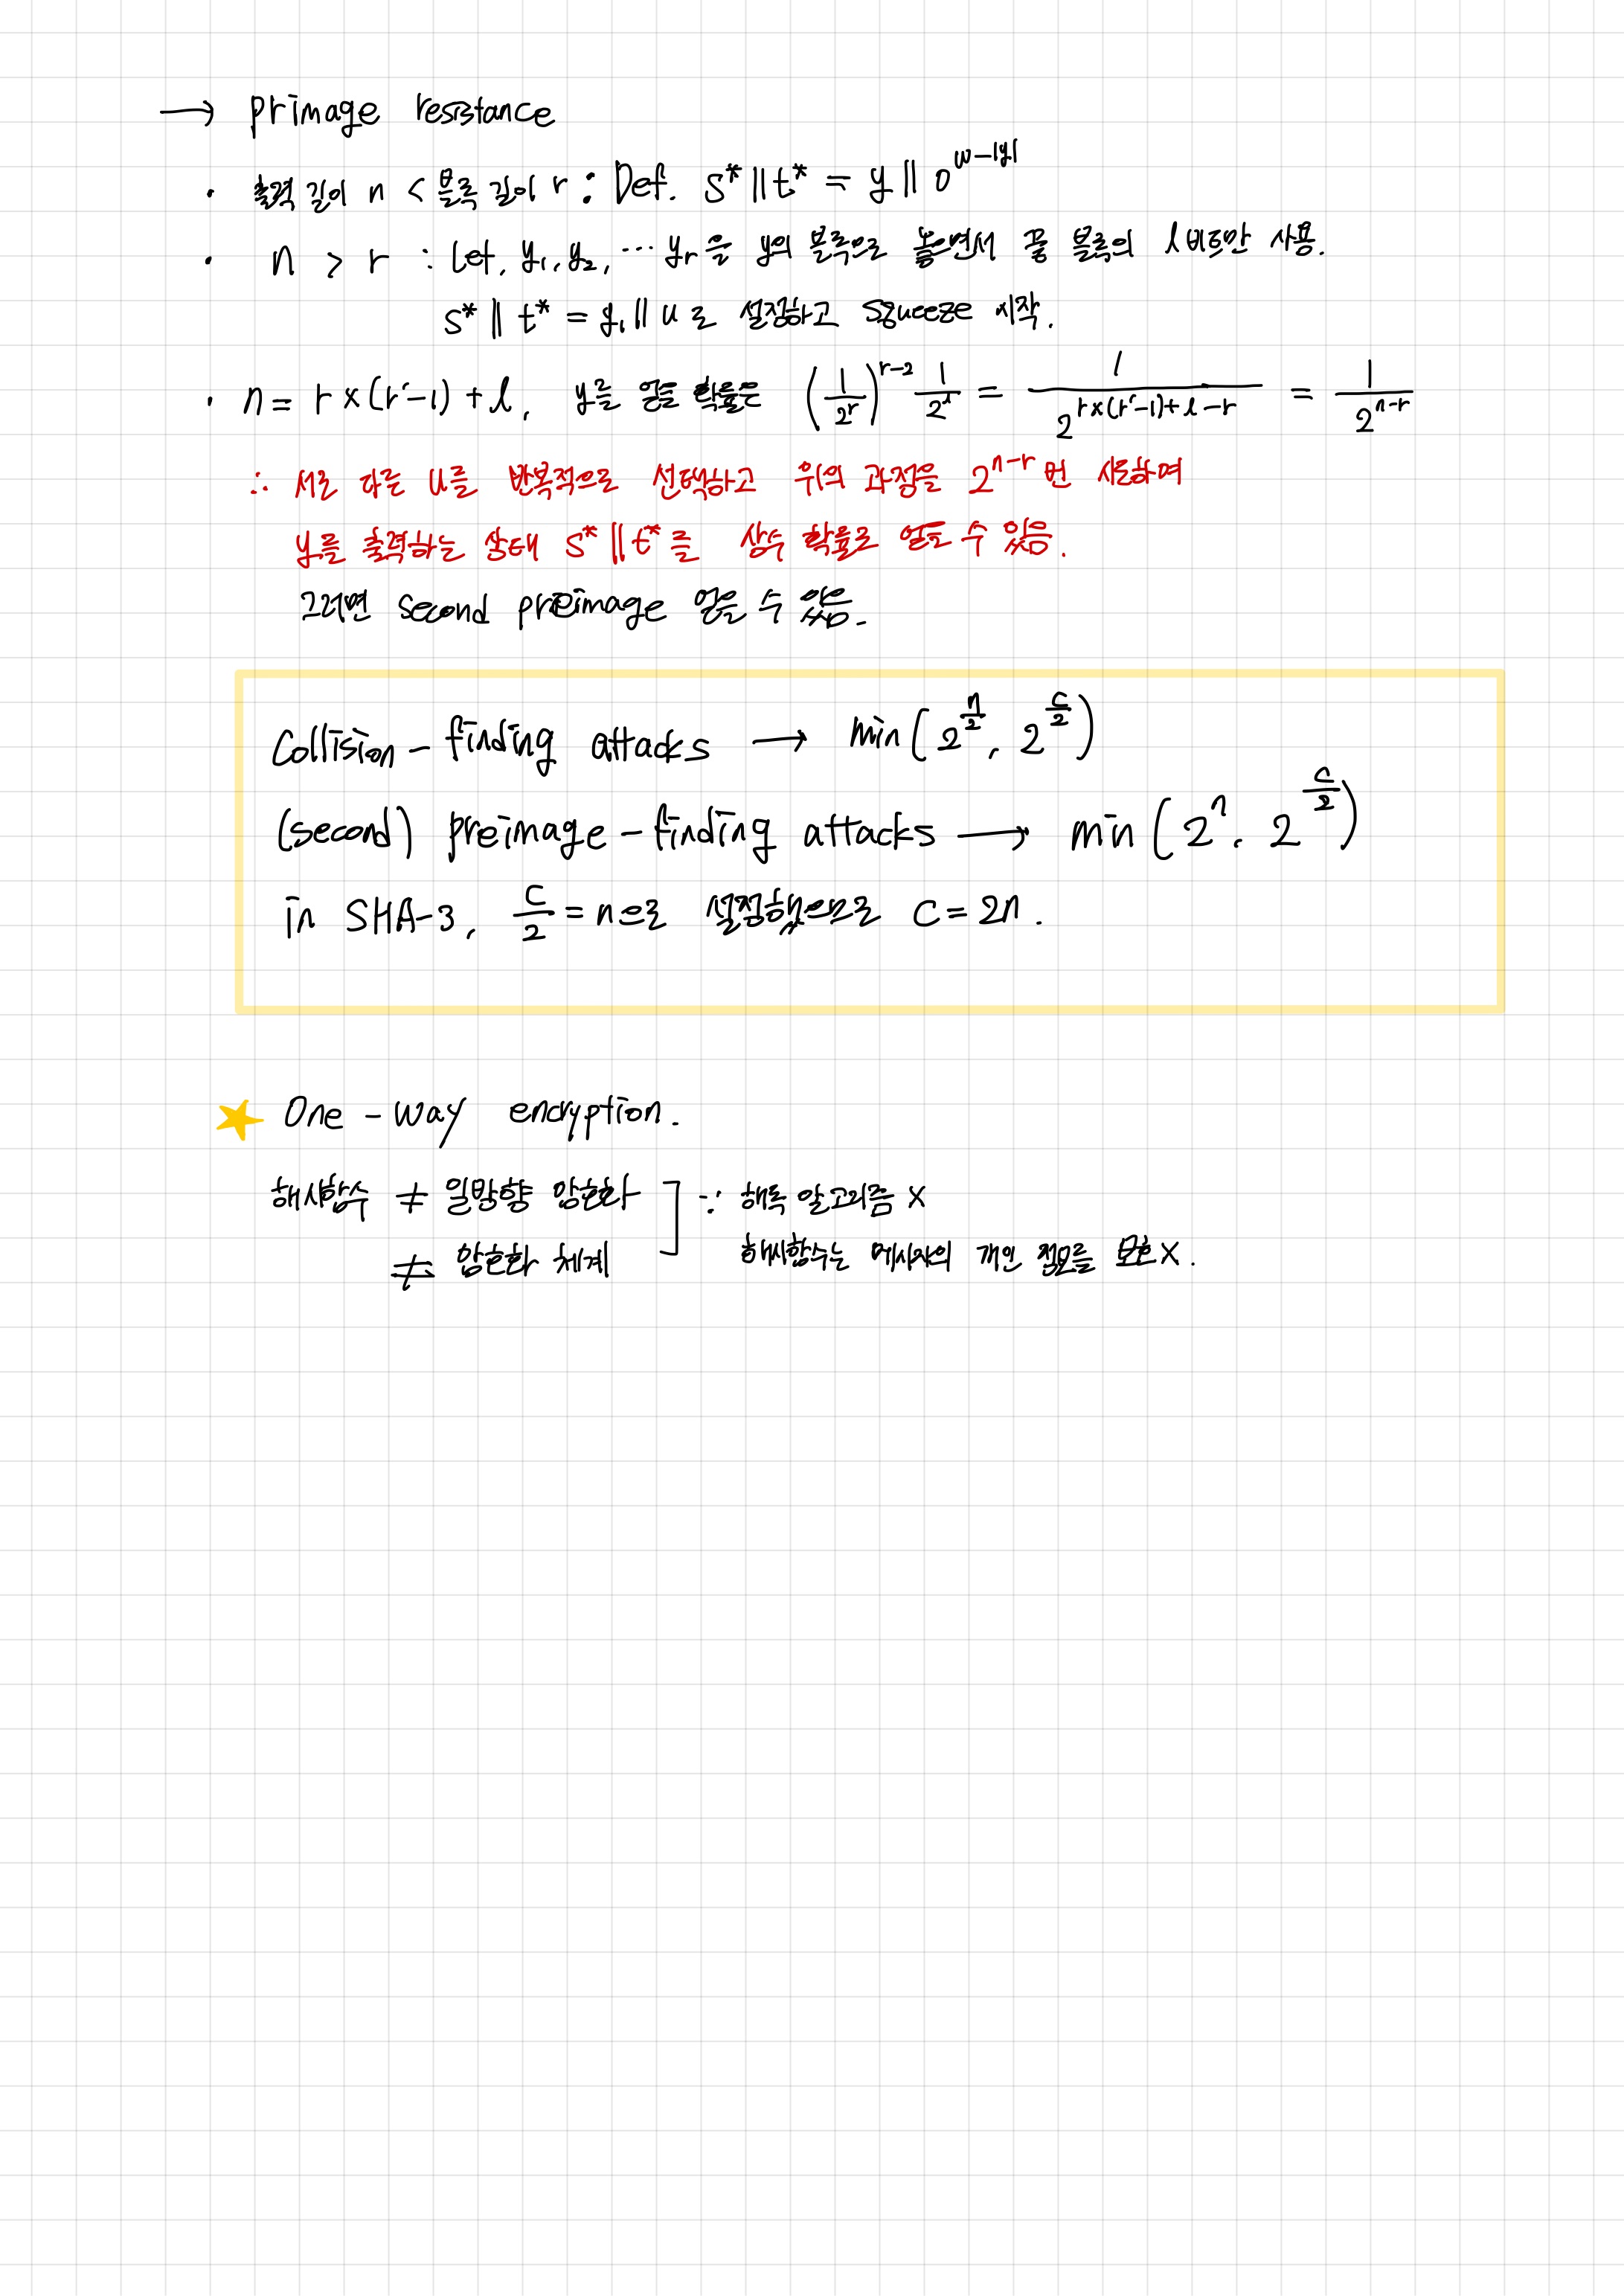 → primage resistance
· 출력 길이 n < 블록 길이 r : Def. s* || t* = y || 0^{w-|y|}
· n > r : Let, y₁, y₂, … yᵣ 을 y의 블록으로 놓으면서 끝 블록의 l 비트만 사용.
s* || t* = y₁ || u 로 설정하고 squeeze 시작.
· n = r × (r'-1) + l, y를 얻을 확률은 (1/2^r)^{r-2} 1/2^l = 1/2^{r×(r'-1)+l-r} = 1/2^{n-r}
∴ 서로 다른 u를 반복적으로 선택하고 위의 과정을 2^{n-r} 번 사용하며
y를 출력하는 상태 s* || t* 를 상수 확률로 얻을 수 있음.
그러면 second preimage 얻을 수 있음.
Collision - finding attacks → min(2^{n/2}, 2^{c/2})
(second) preimage - finding attacks → min(2^n, 2^{c/2})
in SHA-3, c/2 = n으로 설정했으므로 c = 2n.
★ One - way encryption.
해시함수 ≠ 일방향 암호화 ] ∵ 해독 알고리즘 X
≠ 암호화 체계 해시함수는 메시지의 개인 정보를 보호 X.